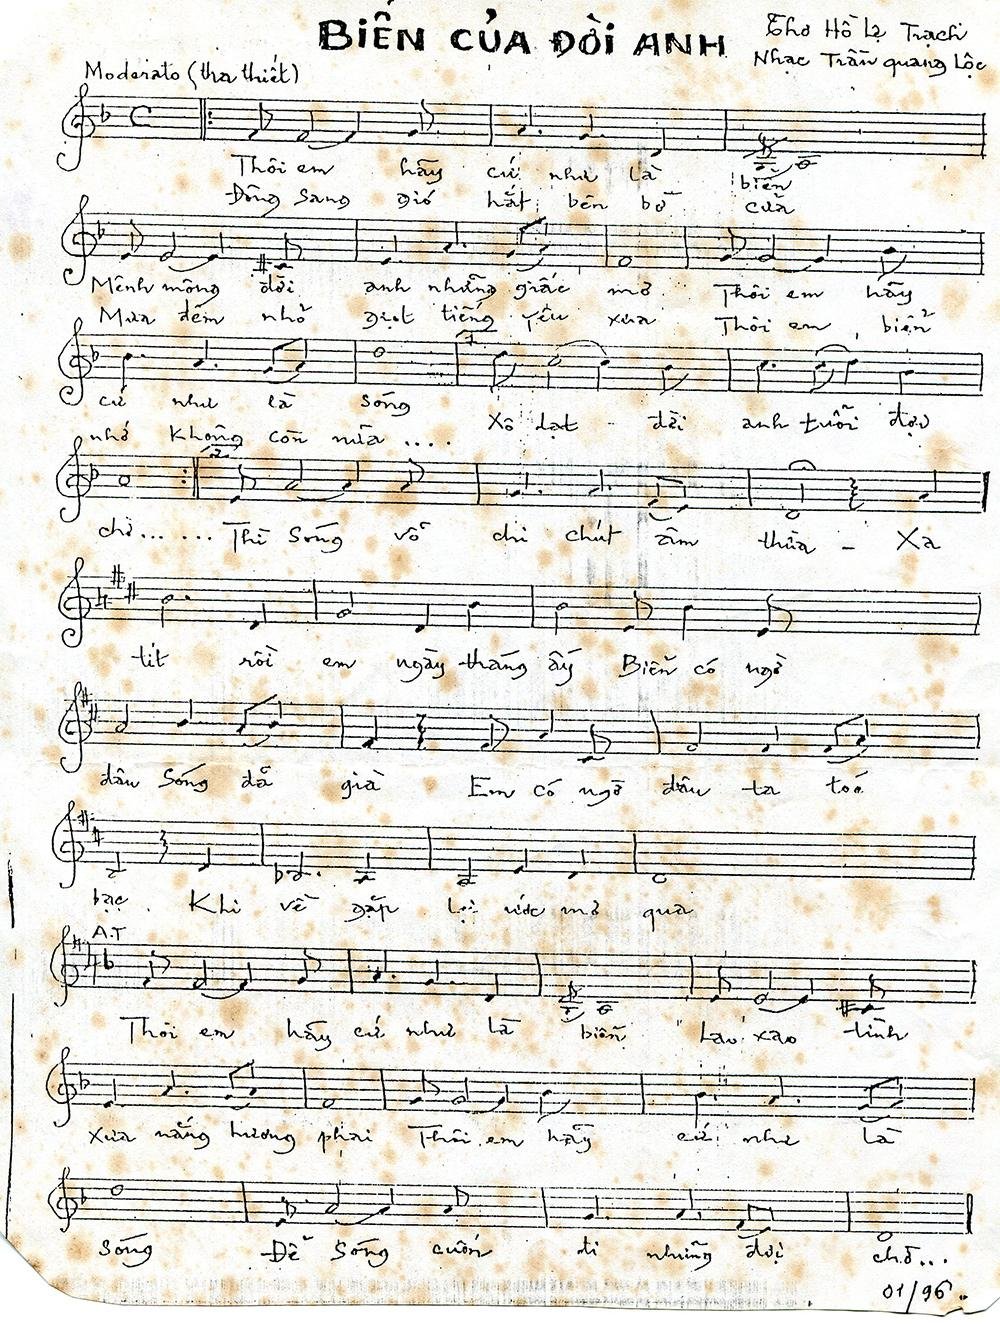 BIỂN CỦA ĐỜI ANH
Thơ Hồ Lệ Trạch
Nhạc Trần quang Lộc
Moderato (tha thiết)
Thôi em hãy cứ như là biển
Đông sang gió hắt bên bờ cửa
Mênh mông đời anh những giấc mơ Thôi em hãy
Mưa đêm nhỏ giọt tiếng yêu xưa Thôi em biển
cứ như là sóng
1
Xô dạt đời anh tuổi đợi
nhớ không còn nữa ....
2
chờ ....... Thì sóng vỗ chi chút âm thừa - Xa
tít rồi em ngày tháng ấy Biển có ngờ
đâu sóng đã già Em có ngờ đâu ta tóc
bạc . Khi về gặp lại ước mơ qua
A.T
Thôi em hãy cứ như là biển Lao xao tình
xưa nắng hương phai Thôi em hãy cứ như là
sóng Để sóng cuốn đi những đợi chờ...
01/96